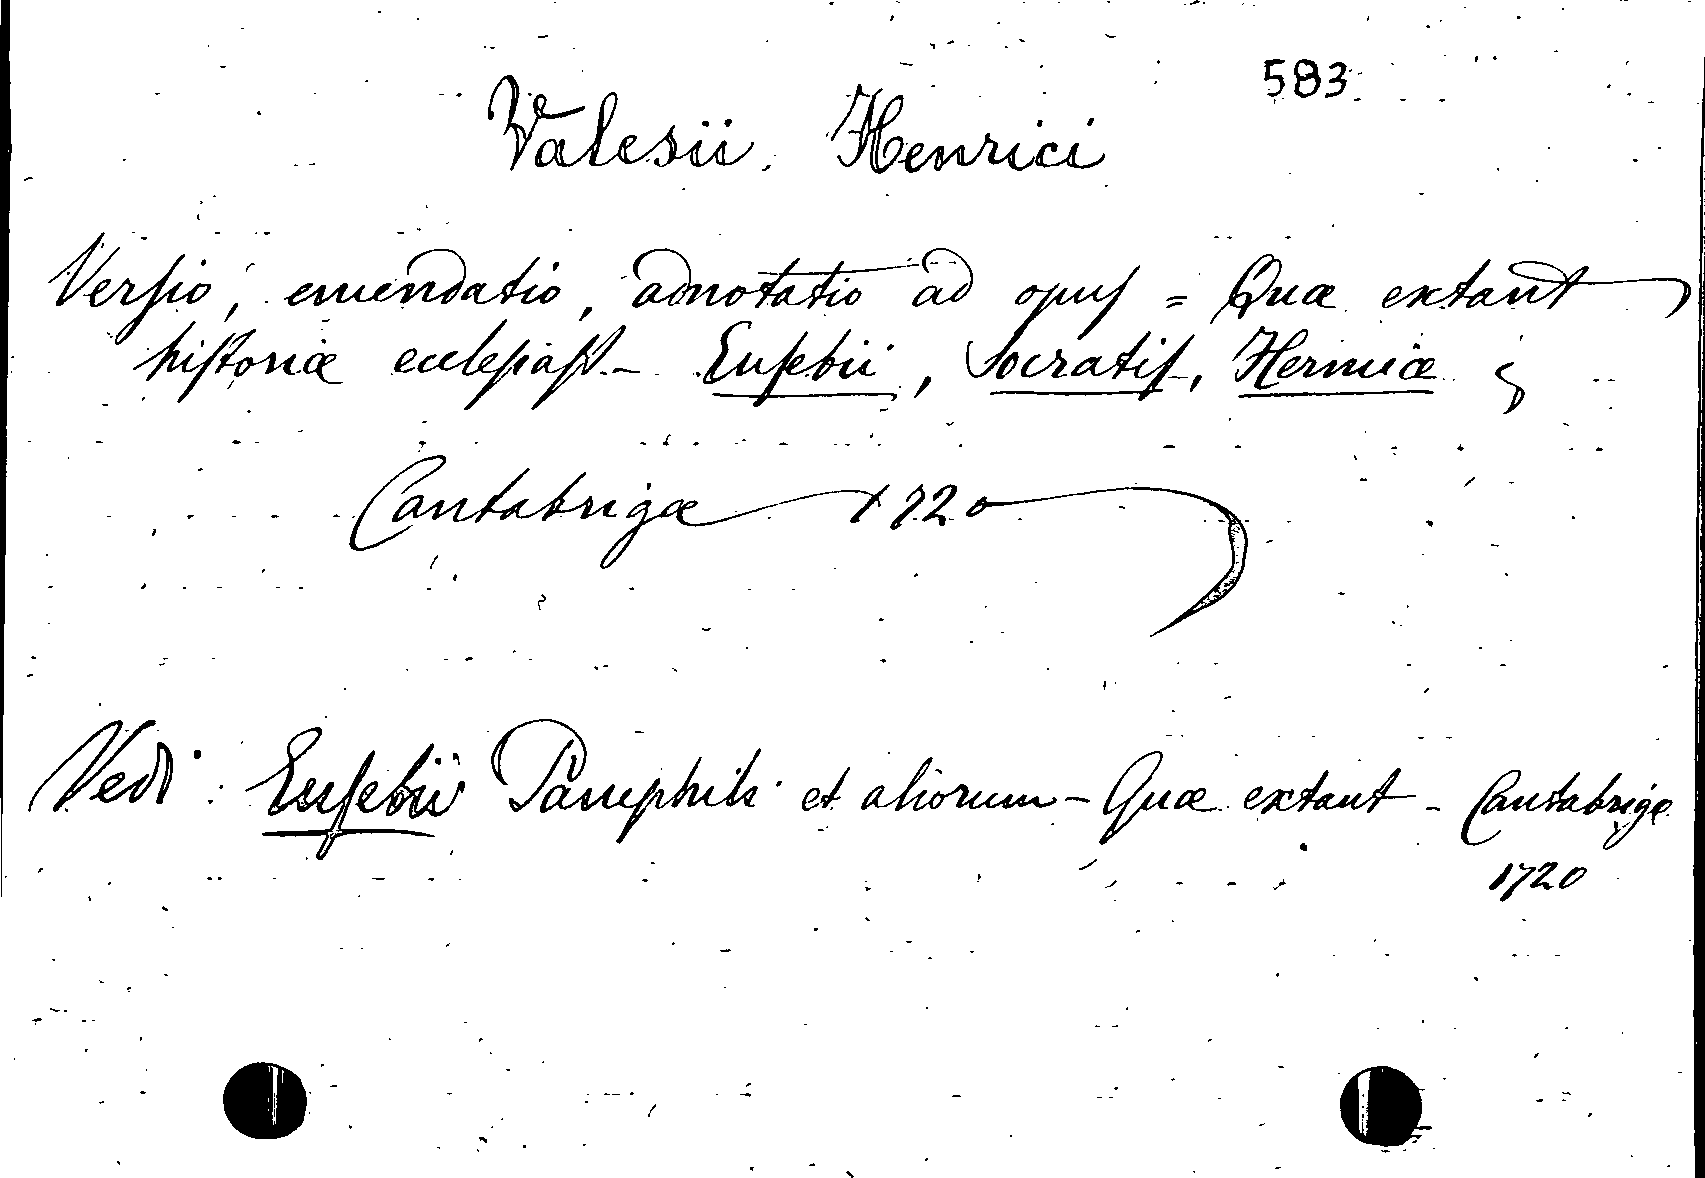 583
Valesii. Henrici
Versio, emendatio, adnotatio ad opus = Quæ extant
historiæ ecclesiast. - Eusebii, Socratis, Hermiæ
Cantabrigæ 1720
Vedi: Eusebii Pamphili et aliorum - Quæ extant - Cantabrigæ
1720